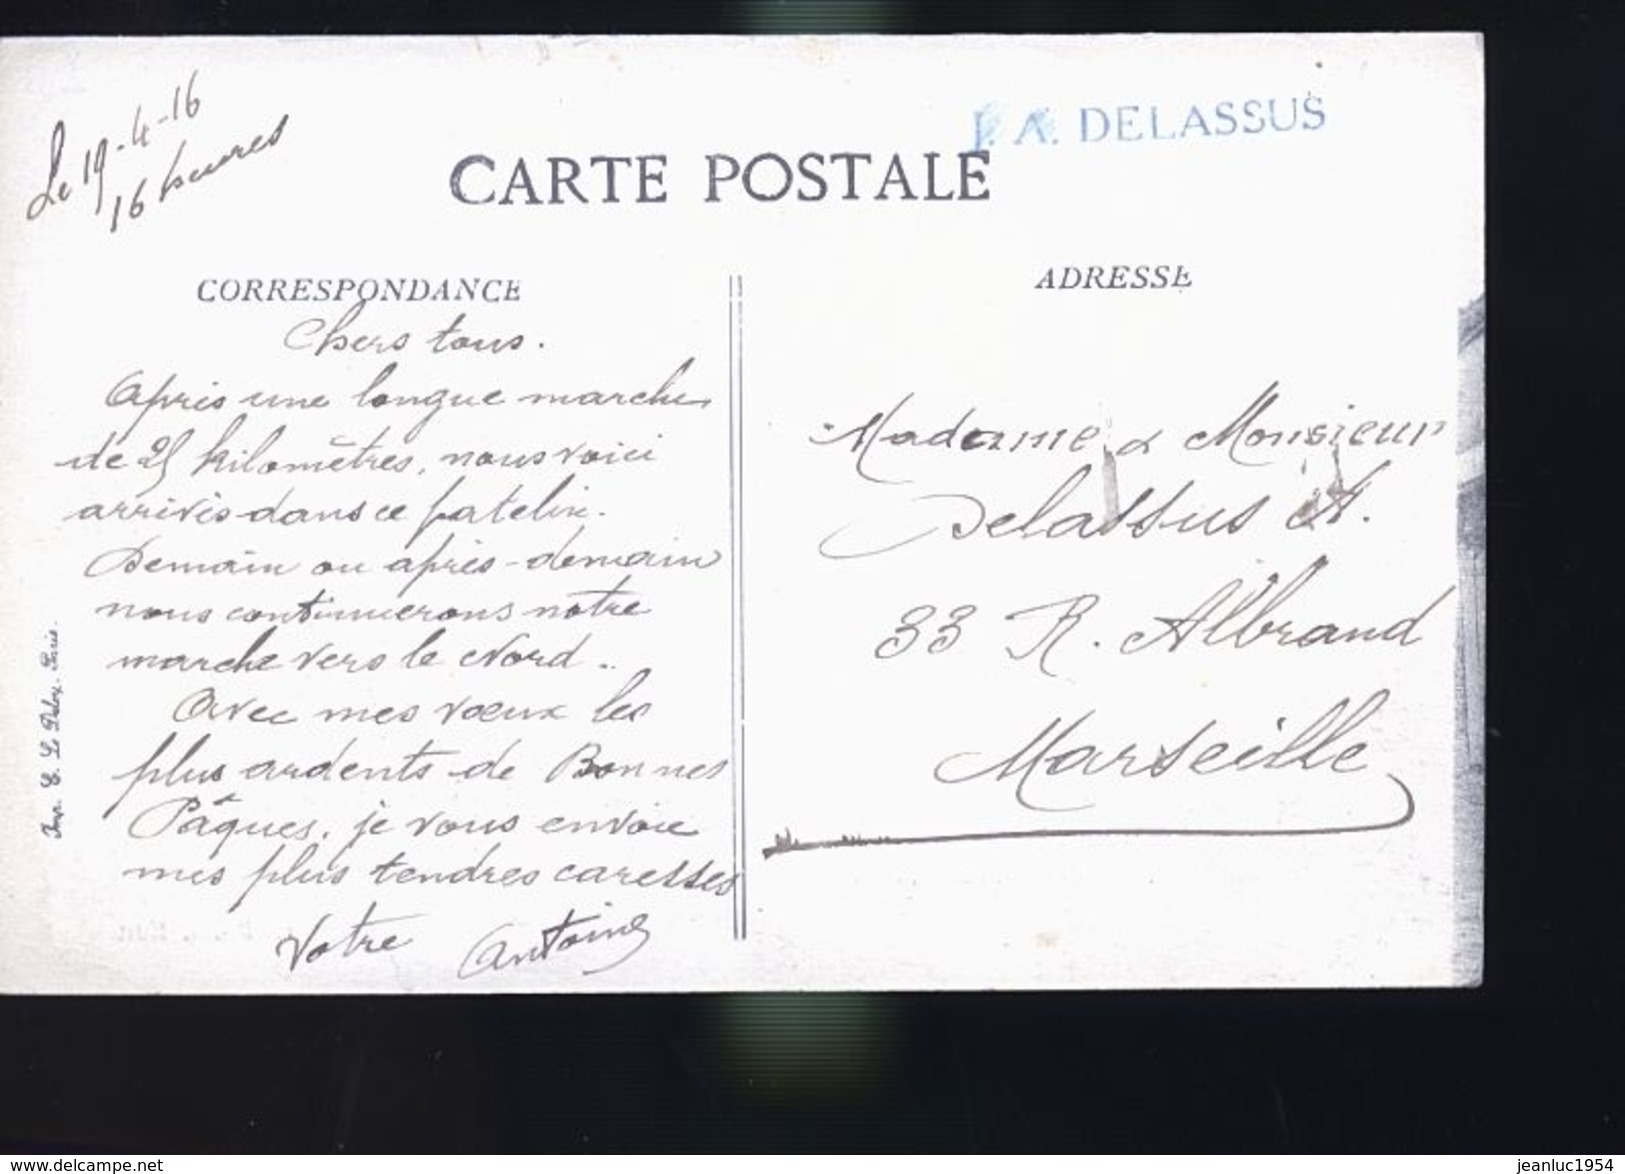 Le 19-4-16
16 heures
J. A. DELASSUS
CARTE POSTALE
CORRESPONDANCE
Chers tous.
Après une longue marche
de 25 kilomètres, nous voici
arrivés dans ce patelin.
Demain ou après-demain
nous continuerons notre
marche vers le Nord..
Avec mes vœux les
plus ardents de Bonnes
Pâques, je vous envoie
mes plus tendres caresses
Votre Antoine
Imp. E. Le Deley, Paris.
ADRESSE
Madame & Monsieur
Delassus A.
33 R. Albrand
Marseille
delcampe.net
jeanluc1954